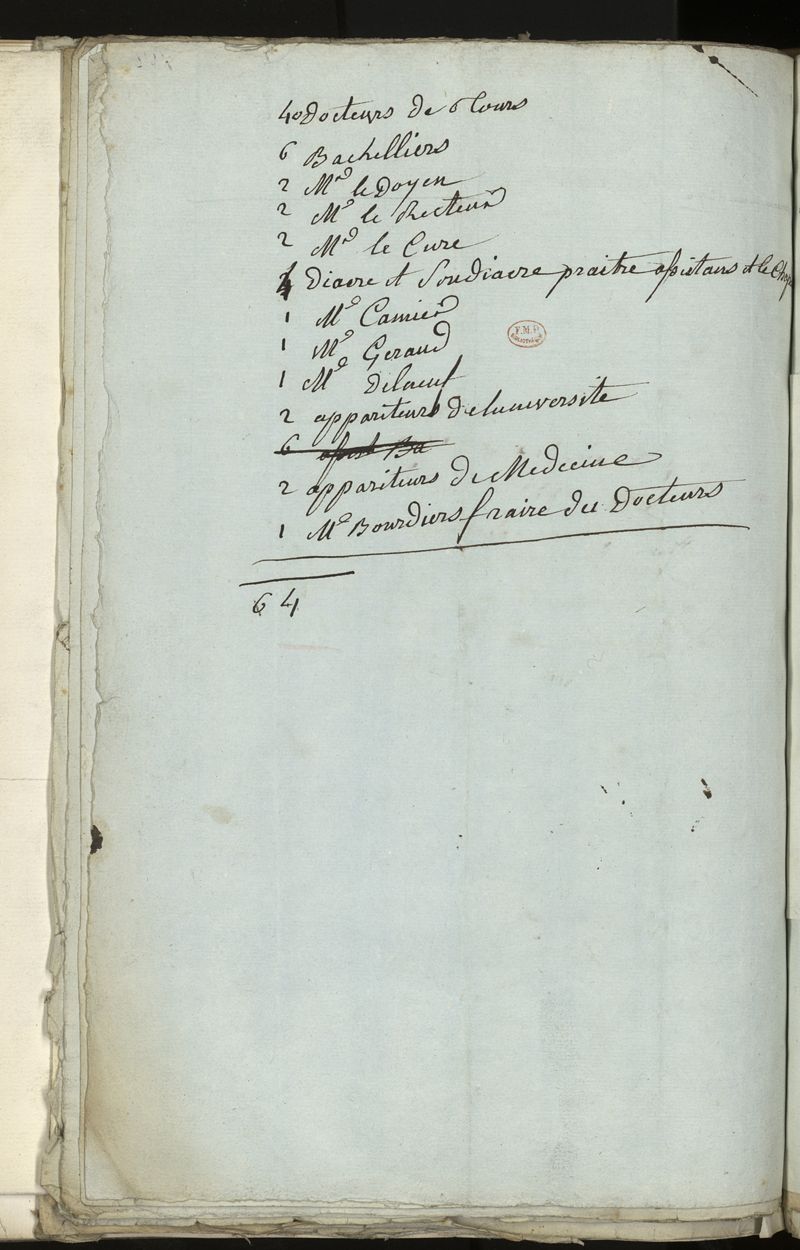 40 Docteurs de Tours
6 Bachelliers
2 Mr le Doyen
2 Mr le Recteur
2 Mr le Cure
4 Diacre et Soudiacre praitre assistans et le
1 Mr Camier
1 Mr Geraud
1 Mr
2 appariteurs de luniversite
6
2 appariteurs de Medecine
1 Mr Bourdiers fraire du Docteurs
64
F.M.P.
BIBLIOTHÈQUE